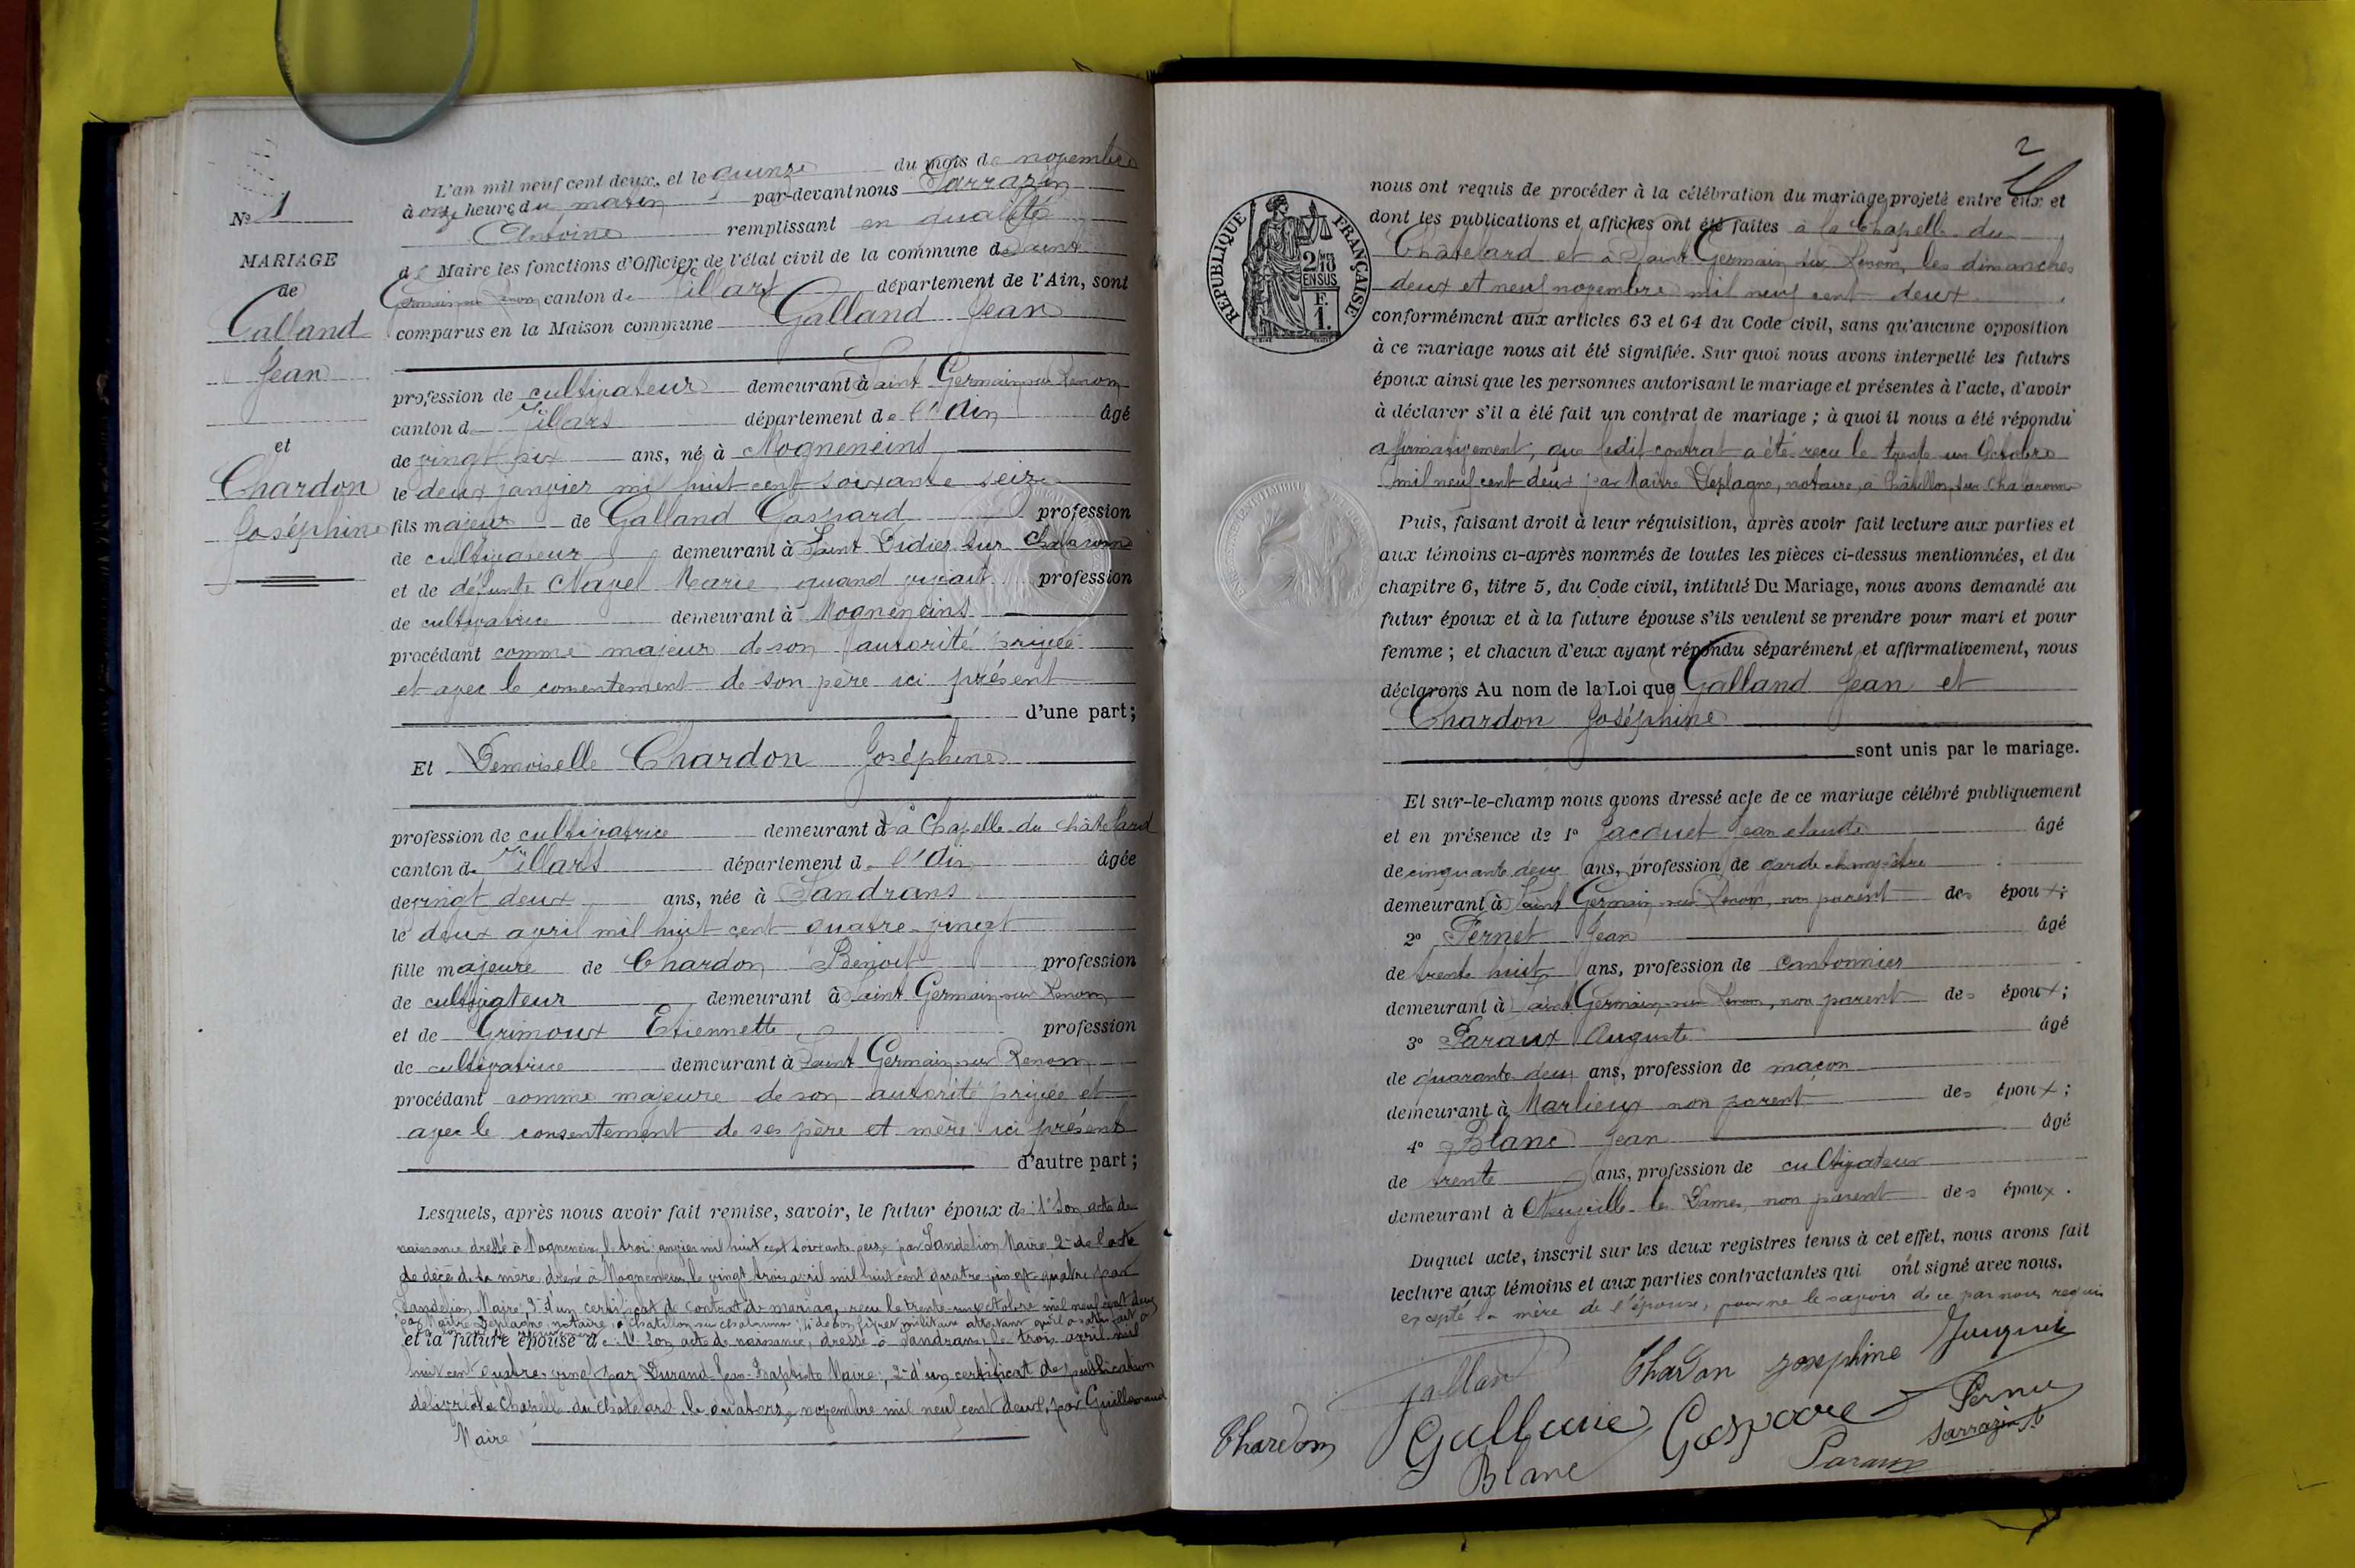 L'an mil neuf cent deux, et le quinze du mois de novembre
à onze heures du matin par-devant nous Sarrazin
Antoine remplissant en qualité
de Maire les fonctions d'Officier de l'état civil de la commune de Saint
Germain sur Renom canton de Villars département de l'Ain, sont
comparus en la Maison commune Galland Jean
No 1
MARIAGE
de
Galland
Jean
et
Chardon
Joséphine
profession de cultivateur demeurant à Saint Germain sur Renom
canton de Villars département de l'Ain âgé
de vingt six ans, né à Mogneneins
le deux janvier mil huit cent soixante seize
fils majeur de Galland Gaspard profession
de cultivateur demeurant à Saint Didier sur Chalaronne
et de défunte Nayel Marie quand vivait profession
de cultivatrice demeurant à Mogneneins
procédant comme majeur de son autorité privée
et avec le consentement de son père ici présent
d'une part;
Et Demoiselle Chardon Joséphine
profession de cultivatrice demeurant à la Chapelle du Châtelard
canton de Villars département de l'Ain âgée
de vingt deux ans, née à Sandrans
le deux avril mil huit cent quatre-vingt
fille majeure de Chardon Benoit profession
de cultivateur demeurant à Saint Germain sur Renom
et de Grimoux Etiennette profession
de cultivatrice demeurant à Saint Germain sur Renom
procédant comme majeure de son autorité privée et
avec le consentement de ses père et mère ici présents
d'autre part;
Lesquels, après nous avoir fait remise, savoir, le futur époux de: 1° Son acte de
naissance dressé à Mogneneins le trois janvier mil huit cent soixante seize par Sandelion Maire 2° de l'acte
de décès de sa mère, dressé à Mogneneins le vingt trois avril mil huit cent quatre vingt quatre par
Sandelion Maire; 3° d'un certificat de contrat de mariage, reçu le trente-un octobre mil neuf cent deux
par Maître Deplagne, notaire, à Chatillon sur Chalaronne; 4° de son livret militaire attestant qu'il a satisfait à
et la future épouse de: 1° Son acte de naissance, dressé à Sandrans, le trois avril mil
huit cent quatre-vingt par Durand Jean-Baptiste Maire; 2° d'un certificat de publication
délivré à la Chapelle du Châtelard le quatorze novembre mil neuf cent deux, par Guillemaud
Maire
2
RÉPUBLIQUE FRANÇAISE
EN SUS
nous ont requis de procéder à la célébration du mariage projeté entre eux et
dont les publications et affiches ont été faites à la Chapelle du
Châtelard et à Saint Germain sur Renom, les dimanches
deux et neuf novembre mil neuf cent deux
conformément aux articles 63 et 64 du Code civil, sans qu'aucune opposition
à ce mariage nous ait été signifiée. Sur quoi nous avons interpellé les futurs
époux ainsi que les personnes autorisant le mariage et présentes à l'acte, d'avoir
à déclarer s'il a été fait un contrat de mariage; à quoi il nous a été répondu
affirmativement, que ledit contrat a été reçu le trente un Octobre
mil neuf cent deux par Maître Deplagne, notaire, à Châtillon sur Chalaronne
Puis, faisant droit à leur réquisition, après avoir fait lecture aux parties et
aux témoins ci-après nommés de toutes les pièces ci-dessus mentionnées, et du
chapitre 6, titre 5, du Code civil, intitulé Du Mariage, nous avons demandé au
futur époux et à la future épouse s'ils veulent se prendre pour mari et pour
femme; et chacun d'eux ayant répondu séparément et affirmativement, nous
déclarons Au nom de la Loi que Galland Jean et
Chardon Joséphine
sont unis par le mariage.
Et sur-le-champ nous avons dressé acte de ce mariage célébré publiquement
et en présence de 1° Jacquet Jean claude âgé
de cinquante deux ans, profession de garde champêtre
demeurant à Saint Germain sur Renom, non parent des époux;
2° Pernet Jean âgé
de trente huit ans, profession de cantonnier
demeurant à Saint Germain sur Renom, non parent des époux;
3° Paraux Auguste âgé
de quarante deux ans, profession de maçon
demeurant à Marlieux non parent des époux;
4° Blanc Jean âgé
de trente ans, profession de cultivateur
demeurant à Neuville les Dames, non parent des époux.
Duquel acte, inscrit sur les deux registres tenus à cet effet, nous avons fait
lecture aux témoins et aux parties contractantes qui ont signé avec nous.
excepté la mère de l'épouse, pour ne le savoir de ce par nous requis
Galland Chardon Josephine Jacquet
Chardon Galland Gaspard Pernet
Blanc Paraux Sarrazin